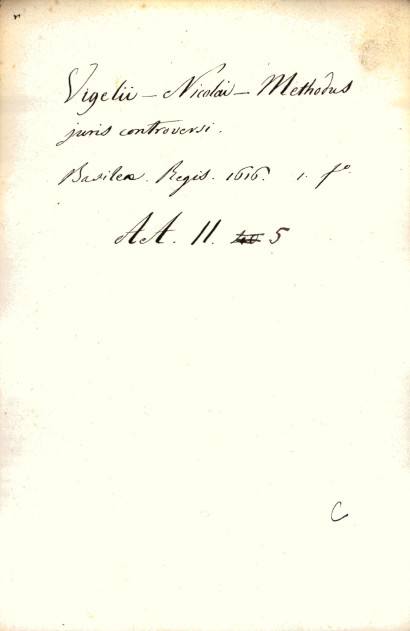 Vigelii - Nicolai - Methodus
juris controversi.
Basileæ. Regis. 1616. 1. fo.
AA. 11. 5
C